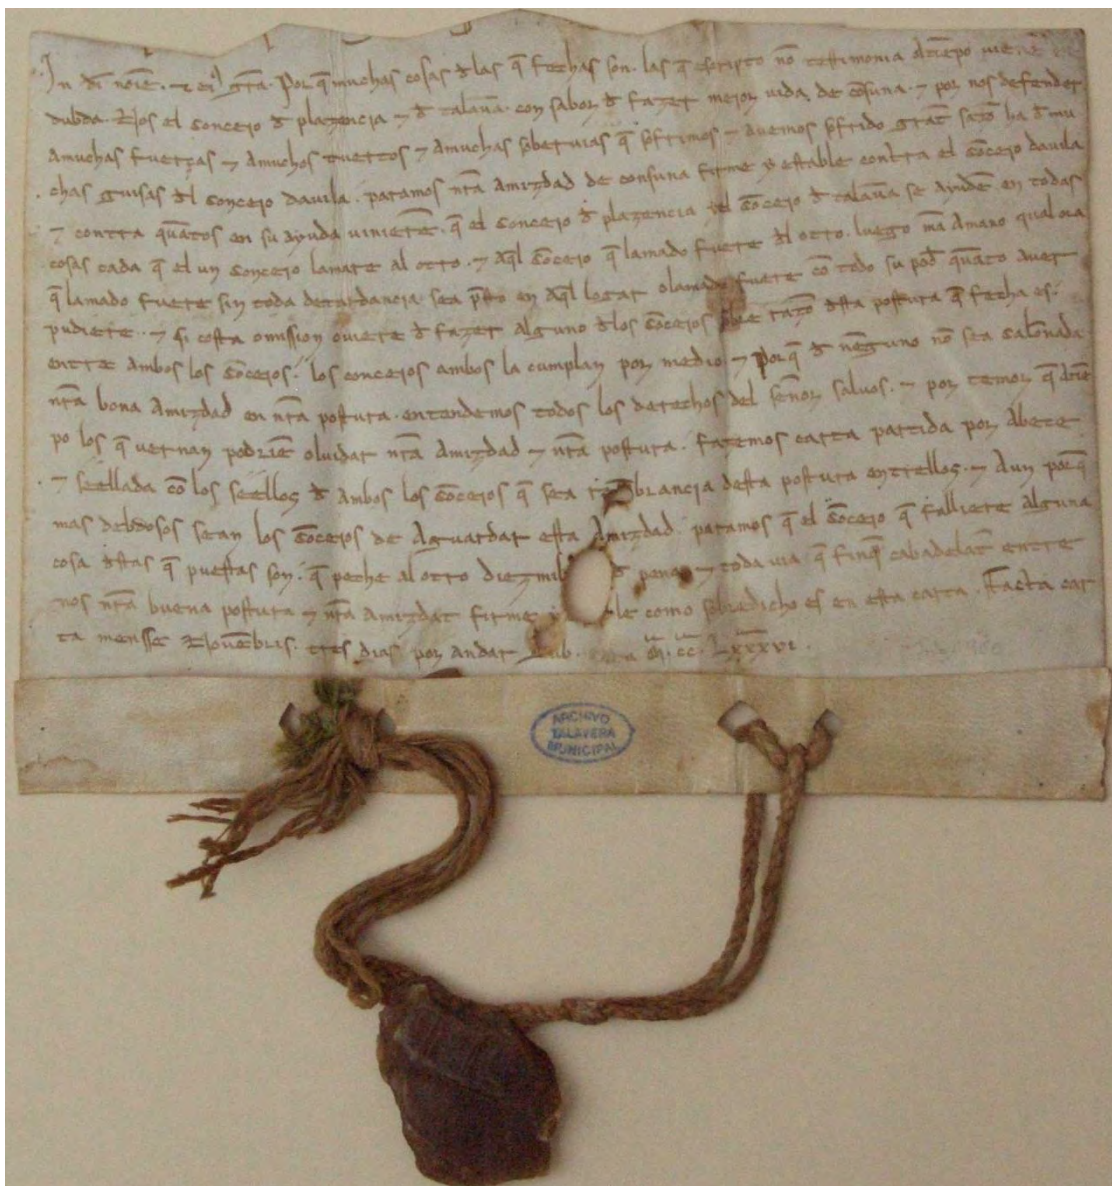 In di noiē. ⁊ eiꝰ gr̄a. Por q̄ muchas cosas dlas q̄ fechas son. las q̄ escripto nō testimonia atiēpo vienē
dubda. Nos el Concejo đ plazencia ⁊ đ talaūa. con sabor đ fazer mejor vida de cōsuna. ⁊ por nos defender
amuchas fuerças ⁊ Amuchos tuertos ⁊ Amuchas soberuias q̄ sofrimos ⁊ auemos sofrido grāt sazō ha đ mu
chas guisas đl Concejo dauila. paramos nr̄a Amizdad de consuna firme ⁊ estable contra el Cōcejo dauila
⁊ contra quātos en su ayuda vinierē. q̄ el Concejo đ plazencia ⁊ el Cōcejo đ talaūa se ayudē en todas
cosas cada q̄ el un Concejo lamare al otro. ⁊ Aq̄l Cōcejo q̄ lamado fuere đl otro. luego mā Amano qual ora
q̄ lamado fuere sin toda detardancia sea pr̄sto en Aq̄l logar olamado fuere cō todo su pod̄ quāto auer
pudiere. ⁊ q̄ costa o mission ouiere đ fazer alguno đlos Cōcejos sobre razō đsta postura q̄ fecha es.
entre Ambos los Cōcejos. los concejos ambos la cumplan por medio ⁊ Por q̄ đ nēguno nō sea Calōnada
nr̄a bona Amizdad en nr̄a postura. entendemos todos los derechos del Señor saluos. ⁊ por temor q̄ atiē
po los q̄ vernan podriē oluidar nr̄a Amizdad ⁊ nr̄a postura. fazemos carta partida por Abece
⁊ seellada cō los seellos đ Ambos los Cōcejos q̄ sea desta postura entrellos. ⁊ Aun porq̄
mas debdosos sean los Cōcejos de Aguardar esta Amizdad. paramos q̄ el Cōcejo q̄ falliere alguna
cosa đstas q̄ puestas son. q̄ peche al otro diez mil đ pena ⁊ toda uia q̄ finq̄ cabadelāt entre
nos nr̄a buena postura ⁊ nr̄a Amizdat firme como sobredicho es en esta carta. Facta car
ta mensse Nouēbris. tres dias por andar Sub ꝏ. cc. Lxxxvi.
ARCHIVO
TALAVERA
MUNICIPAL